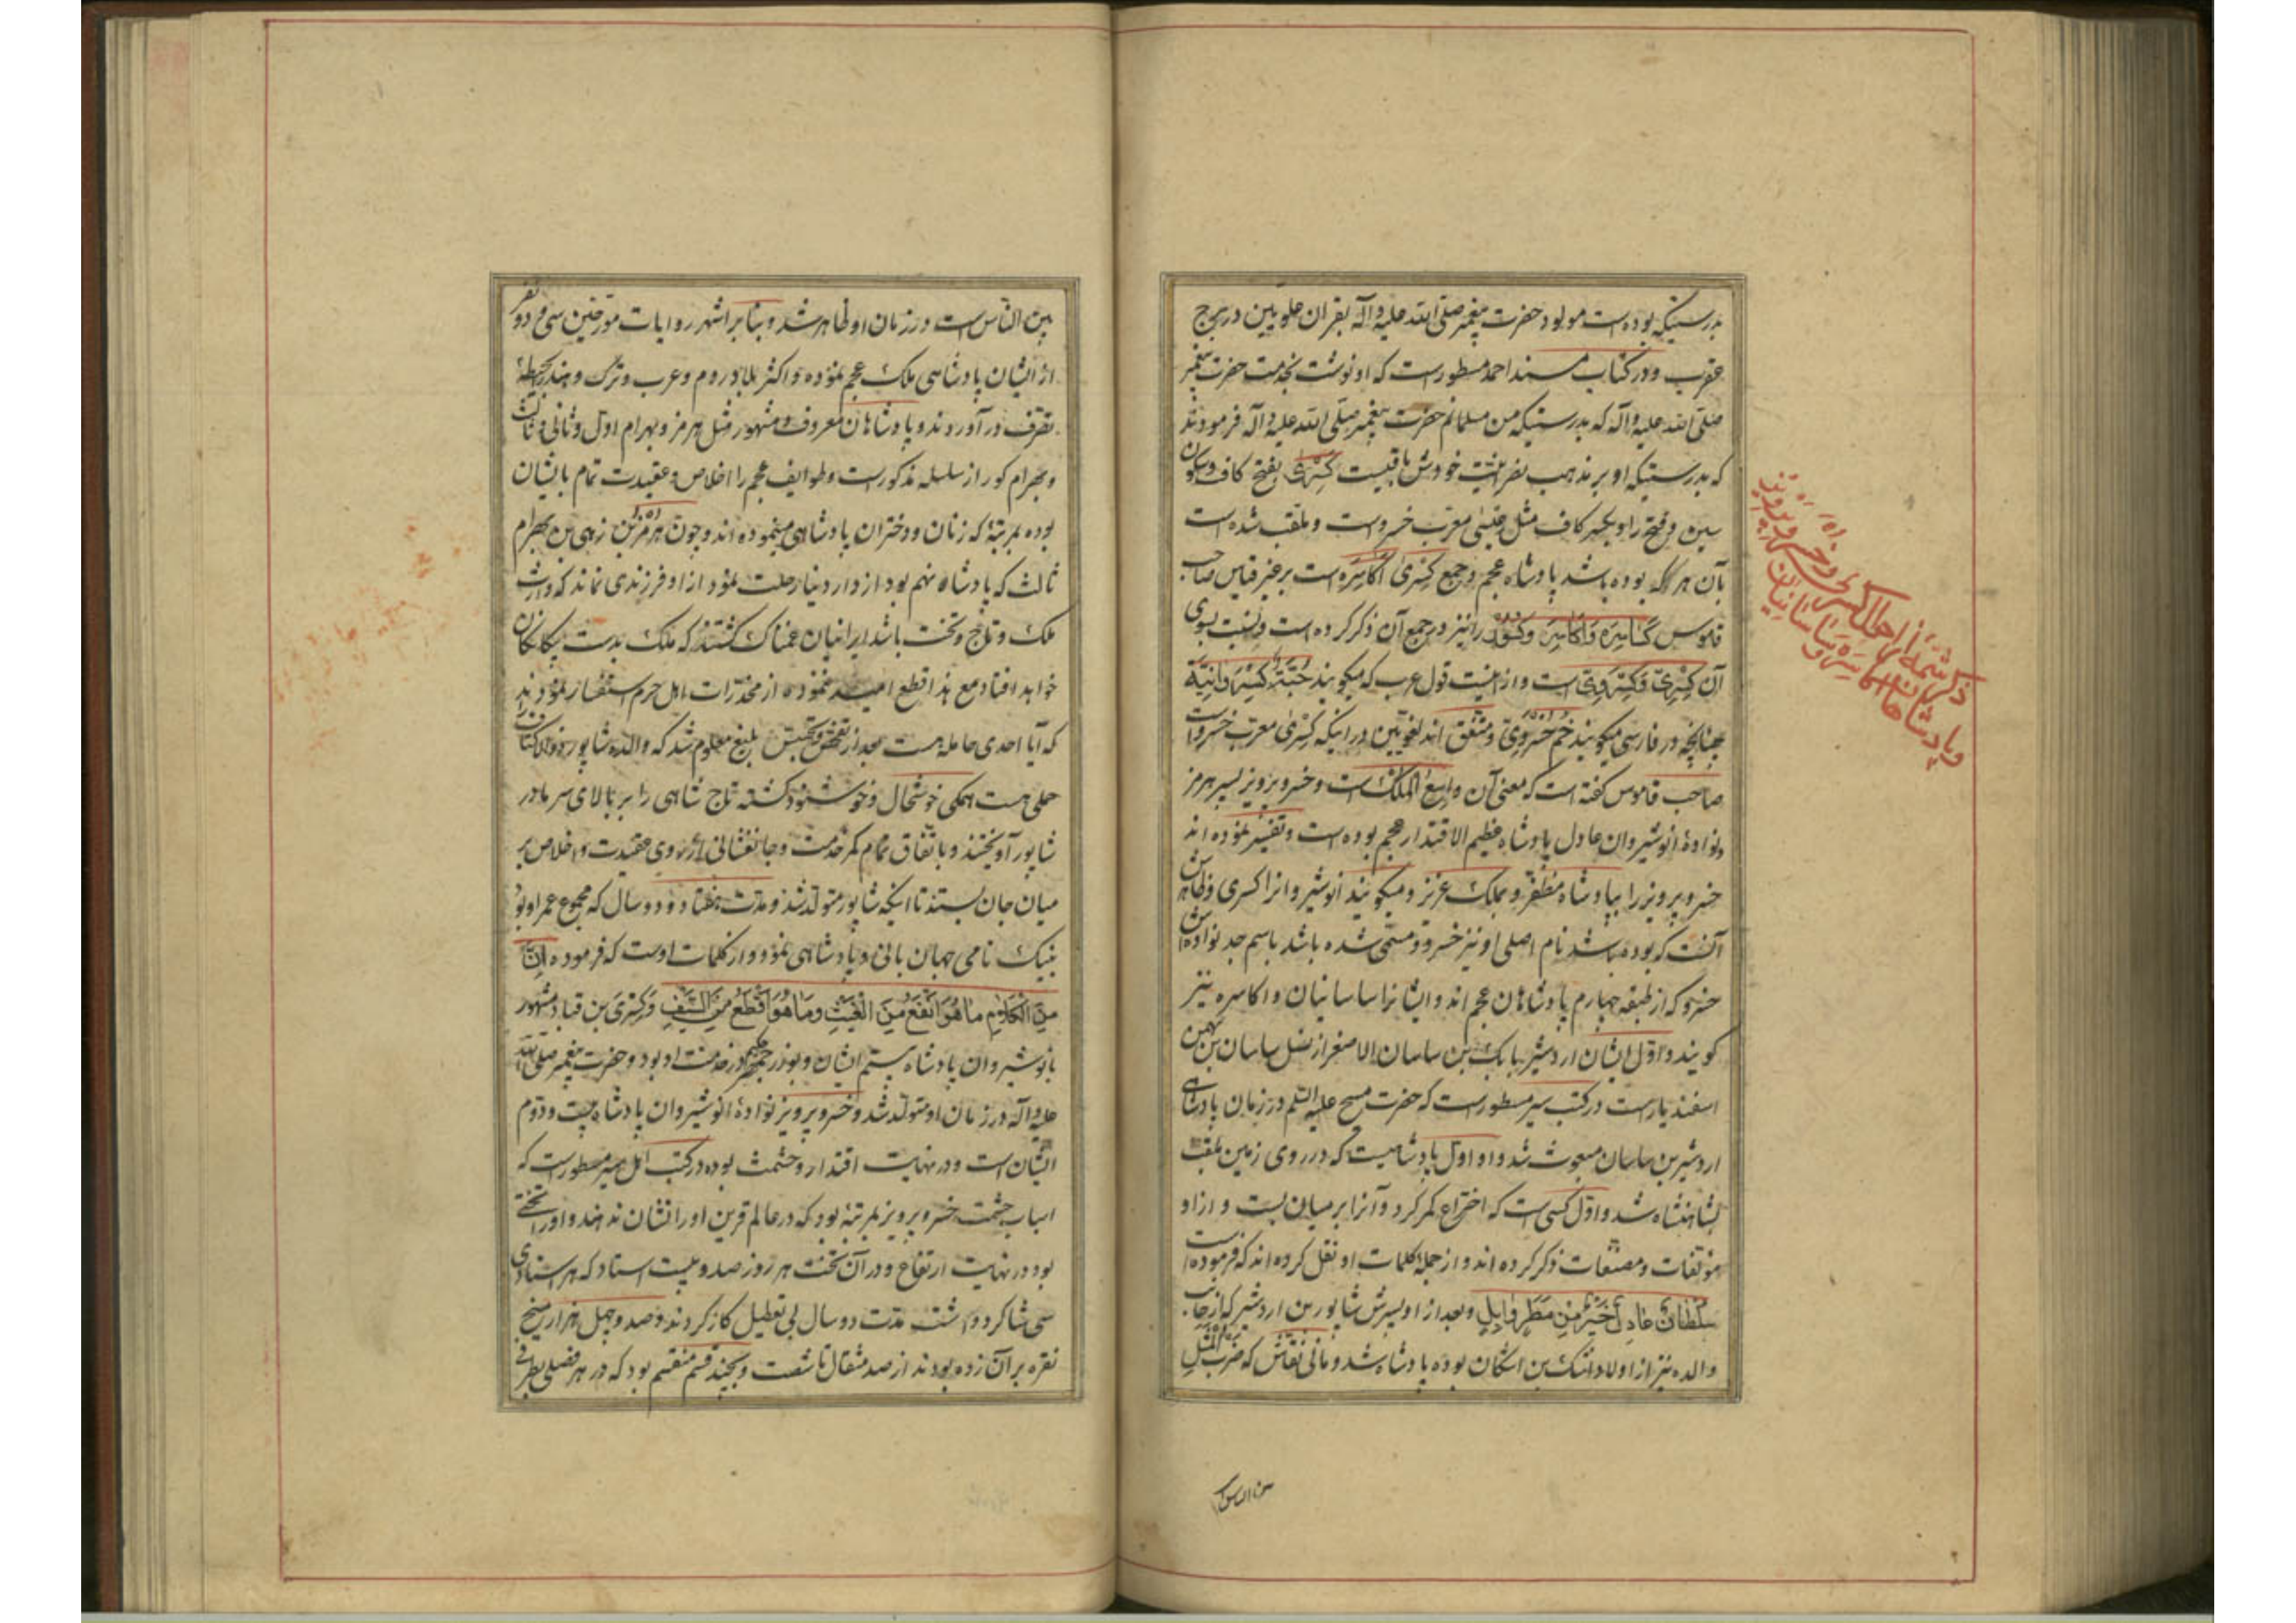 بدرستیکه بوده است مولود حضرت پیغمبر صلی الله علیه و آله بقران علویین در برج
عقرب و در کتاب مسند احمد مسطور است که او نوشت بخدمت حضرت پیغمبر
صلی الله علیه و آله که بدرستیکه من مسلمانم حضرت پیغمبر صلی الله علیه و آله فرمودند
که بدرستیکه او بر مذهب نصرانیت خودش باقیست کِسْریٰ بفتح کاف و سکون
سین و فتح را و بکسر کاف مثل عیسی معرب خسرو است و ملقب شده است
بآن هر که بوده باشد پادشاه عجم و جمع کِسْریٰ اَکاسِرَه است بر غیر قیاس صاحب
قاموس کَسَاسِرَه وَاَکاسِرَ وکُسُور را نیز در جمع آن ذکر کرده است و نسبت بسوی
آن کِسْرِیّ وَکِسْرَوِیّ است و از اینست قول عرب که میگویند جُبَّةٌ کِسْرَوانِیَّة
چنانچه در فارسی میگویند خُم خُسْرَوِیّ و متفق اند لغویین در اینکه کِسْریٰ معرب خسرو است
صاحب قاموس گفته است که معنی آن واسِعُ المُلک است و خسرو پرویز پسر هرمز
ونوادهٔ انوشیروان عادل پادشاه عظیم الاقتدار عجم بوده است و تفسیر نموده اند
خسرو پرویز را بپادشاه مظفر و بملک عزیز و میگویند انوشیروانرا کسری و ظاهرش
آنست که بوده باشد نام اصلی او نیز خسرو و مسمی شده باشد باسم جد نوادهاش
خسرو که از طبقه چهارم پادشاهان عجم اند و ایشانرا ساسانیان و اکاسره نیز
گویند و اول ایشان اردشیر بابک بن ساسان الاصغر از نسل ساسان بن بهمن
اسفندیار است در کتب سیر مسطور است که حضرت مسیح علیه السلم در زمان پادشاهی
اردشیر بن ساسان مبعوث شد و او اول پادشاهیست که در روی زمین ملقب
بشاهنشاه شد و اول کسی است که اختراع کمر کرد و آنرا بر میان بست و از او
مؤلفات و مصنفات ذکر کرده اند و از جملهٔ کلمات او نقل کرده اند که فرموده است
سُلْطانٌ عادِلٌ خَیْرٌ مِنْ مَطَرٍ وابِلٍ و بعد از او پسرش شاپور بن اردشیر که از جانب
والده نیز از اولاد اشک بن اشکان بوده پادشاه شد و مانی نقاش که ضرب المثل
ذکر شمهٔ از احوال کسری و خسرو پرویز
و پادشاهان اکاسره و ساسانیان
بین الناس
بین الناس است در زمان او ظاهر شد و بنابر اشهر روایات مورخین سی و دو نفر
از ایشان پادشاهی ملک عجم نموده و اکثر بلاد روم و عرب و ترک و هند بحیطهٔ
تصرف در آوردند و پادشاهان معروف و مشهور مثل هرمز و بهرام اول و ثانی و ثالث
و بهرام کور از سلسله مذکور است و طوایف عجم را اخلاص و عقیدت تمام بایشان
بوده بمرتبهٔ که زنان و دختران پادشاهی مینموده اند و چون هُرْمُز بن نرسی بن بهرام
ثالث که پادشاه نهم بود از دار دنیا رحلت نمود از او فرزندی نماند که وارث
ملک و تاج و تخت باشد ایرانیان غمناک گشتند که ملک بدست بیگانگان
خواهد افتاد مع هذا قطع امید ننموده از مخدرات اهل حرم استفسار نمودند
که آیا احدی حامله هست بعد از تفحص و تجسس بلیغ معلوم شد که والده شاپور ذوالاکتاف را
حملی هست همگی خوشحال و خوشنود گشته تاج شاهی را بر بالای سر مادر
شاپور آویختند و باتفاق تمام کمر خدمت و جانفشانی از روی عقیدت و اخلاص بر
میان جان بستند تا اینکه شاپور متولد شد و مدت هفتاد و دو سال که مجموع عمر او بود
بنیک نامی جهان بانی و پادشاهی نمود و از کلمات اوست که فرموده اِنَّ
مِنَ الْکَلامِ ما هُوَ اَنْفَعُ مِنَ الْغَیْثِ وَما هُوَ اَقْطَعُ مِنَ السَّیْفِ وَکِسْریٰ بن قباد مشهور
بانوشیروان پادشاه بیستم ایشان و بوزرجمهر حکیم در خدمت او بود و حضرت پیغمبر صلی الله
علیه و آله در زمان او متولد شد و خسرو پرویز نوادهٔ انوشیروان پادشاه بیست و دوم
ایشان است و در نهایت اقتدار و حشمت بوده در کتب اهل سیر مسطور است که
اسباب حشمت خسرو پرویز بمرتبهٔ بود که در عالم قرین او را نشان ندهند و او را تختی
بود در نهایت ارتفاع و در آن تخت هر روز صد و بیست استاد که هر استادی
سی شاگرد داشت مدت دو سال بی تعطیل کار کردند و صد و چهل هزار میخ
نقره بر آن زده بودند از صد مثقال تا شصت و بچند قسم منقسم بود که در هر فصلی بطرفی